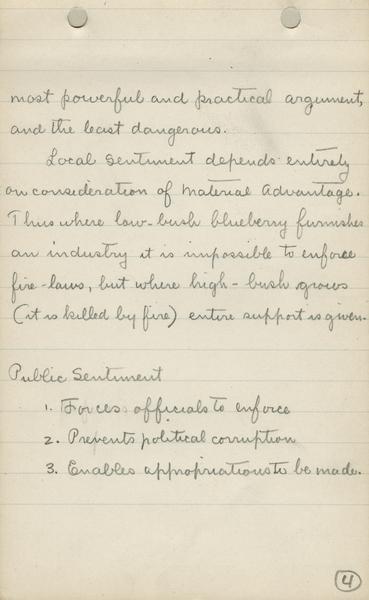 most powerful and practical argument,
and the least dangerous.
Local Sentiment depends entirely
on consideration of Material Advantage.
Thus where low-bush blueberry furnishes
an industry it is impossible to enforce
fire-laws, but where high-bush grows
(it is killed by fire) entire support is given.
Public Sentiment
1. Forces officials to enforce
2. Prevents political corruption
3. Enables appropriations to be made.
4